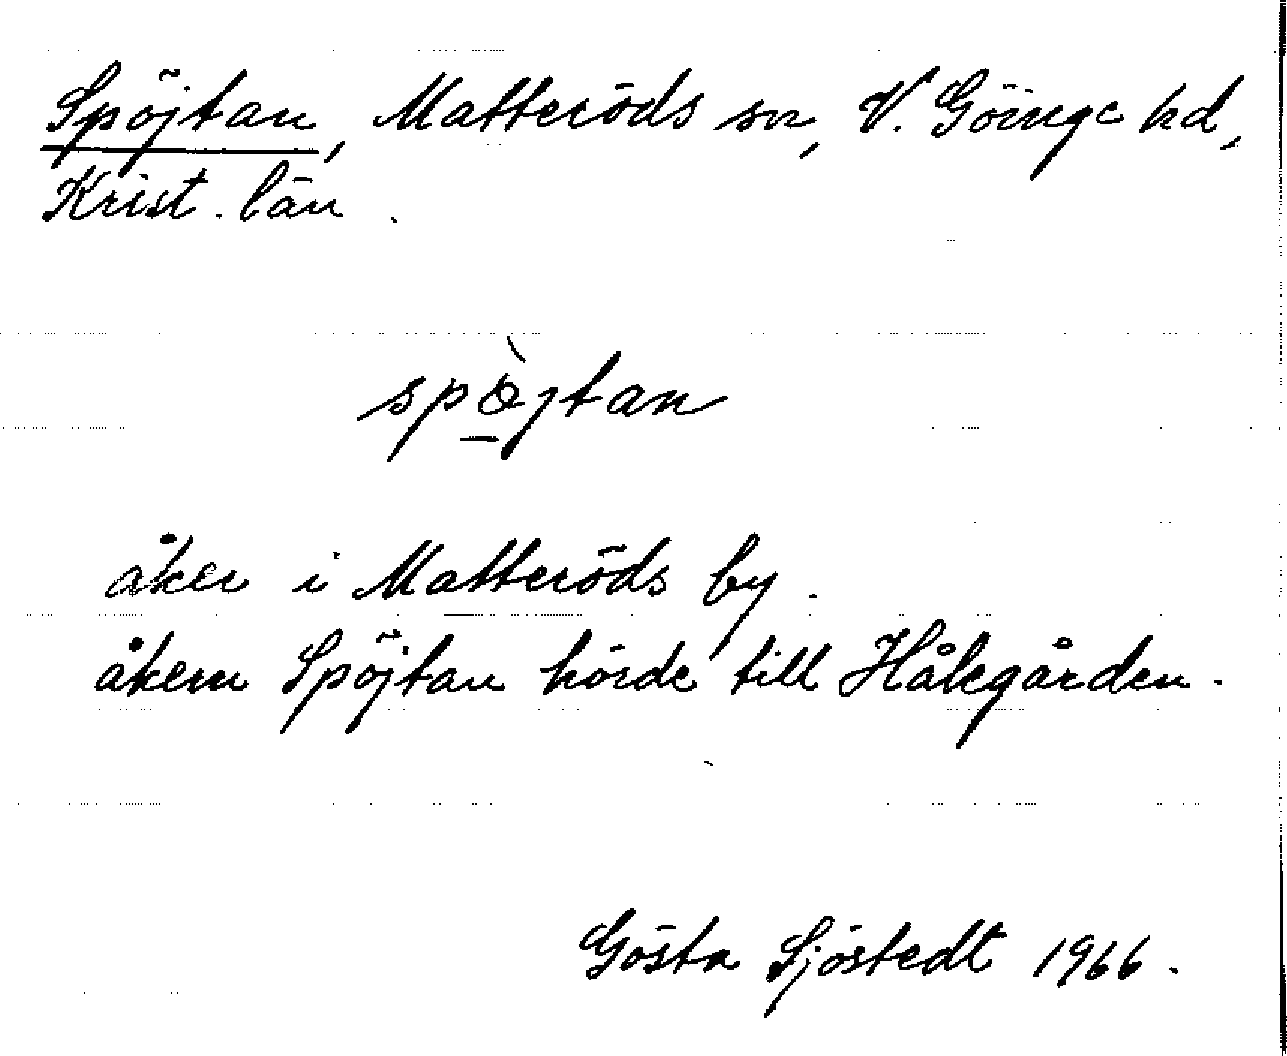 Spöjtan, Matteröds sn, V. Göinge hd,
Krist. län.
spö̀jtan
åker i Matteröds by.
åkern Spöjtan hörde till Hålegården.
Gösta Sjöstedt 1966.